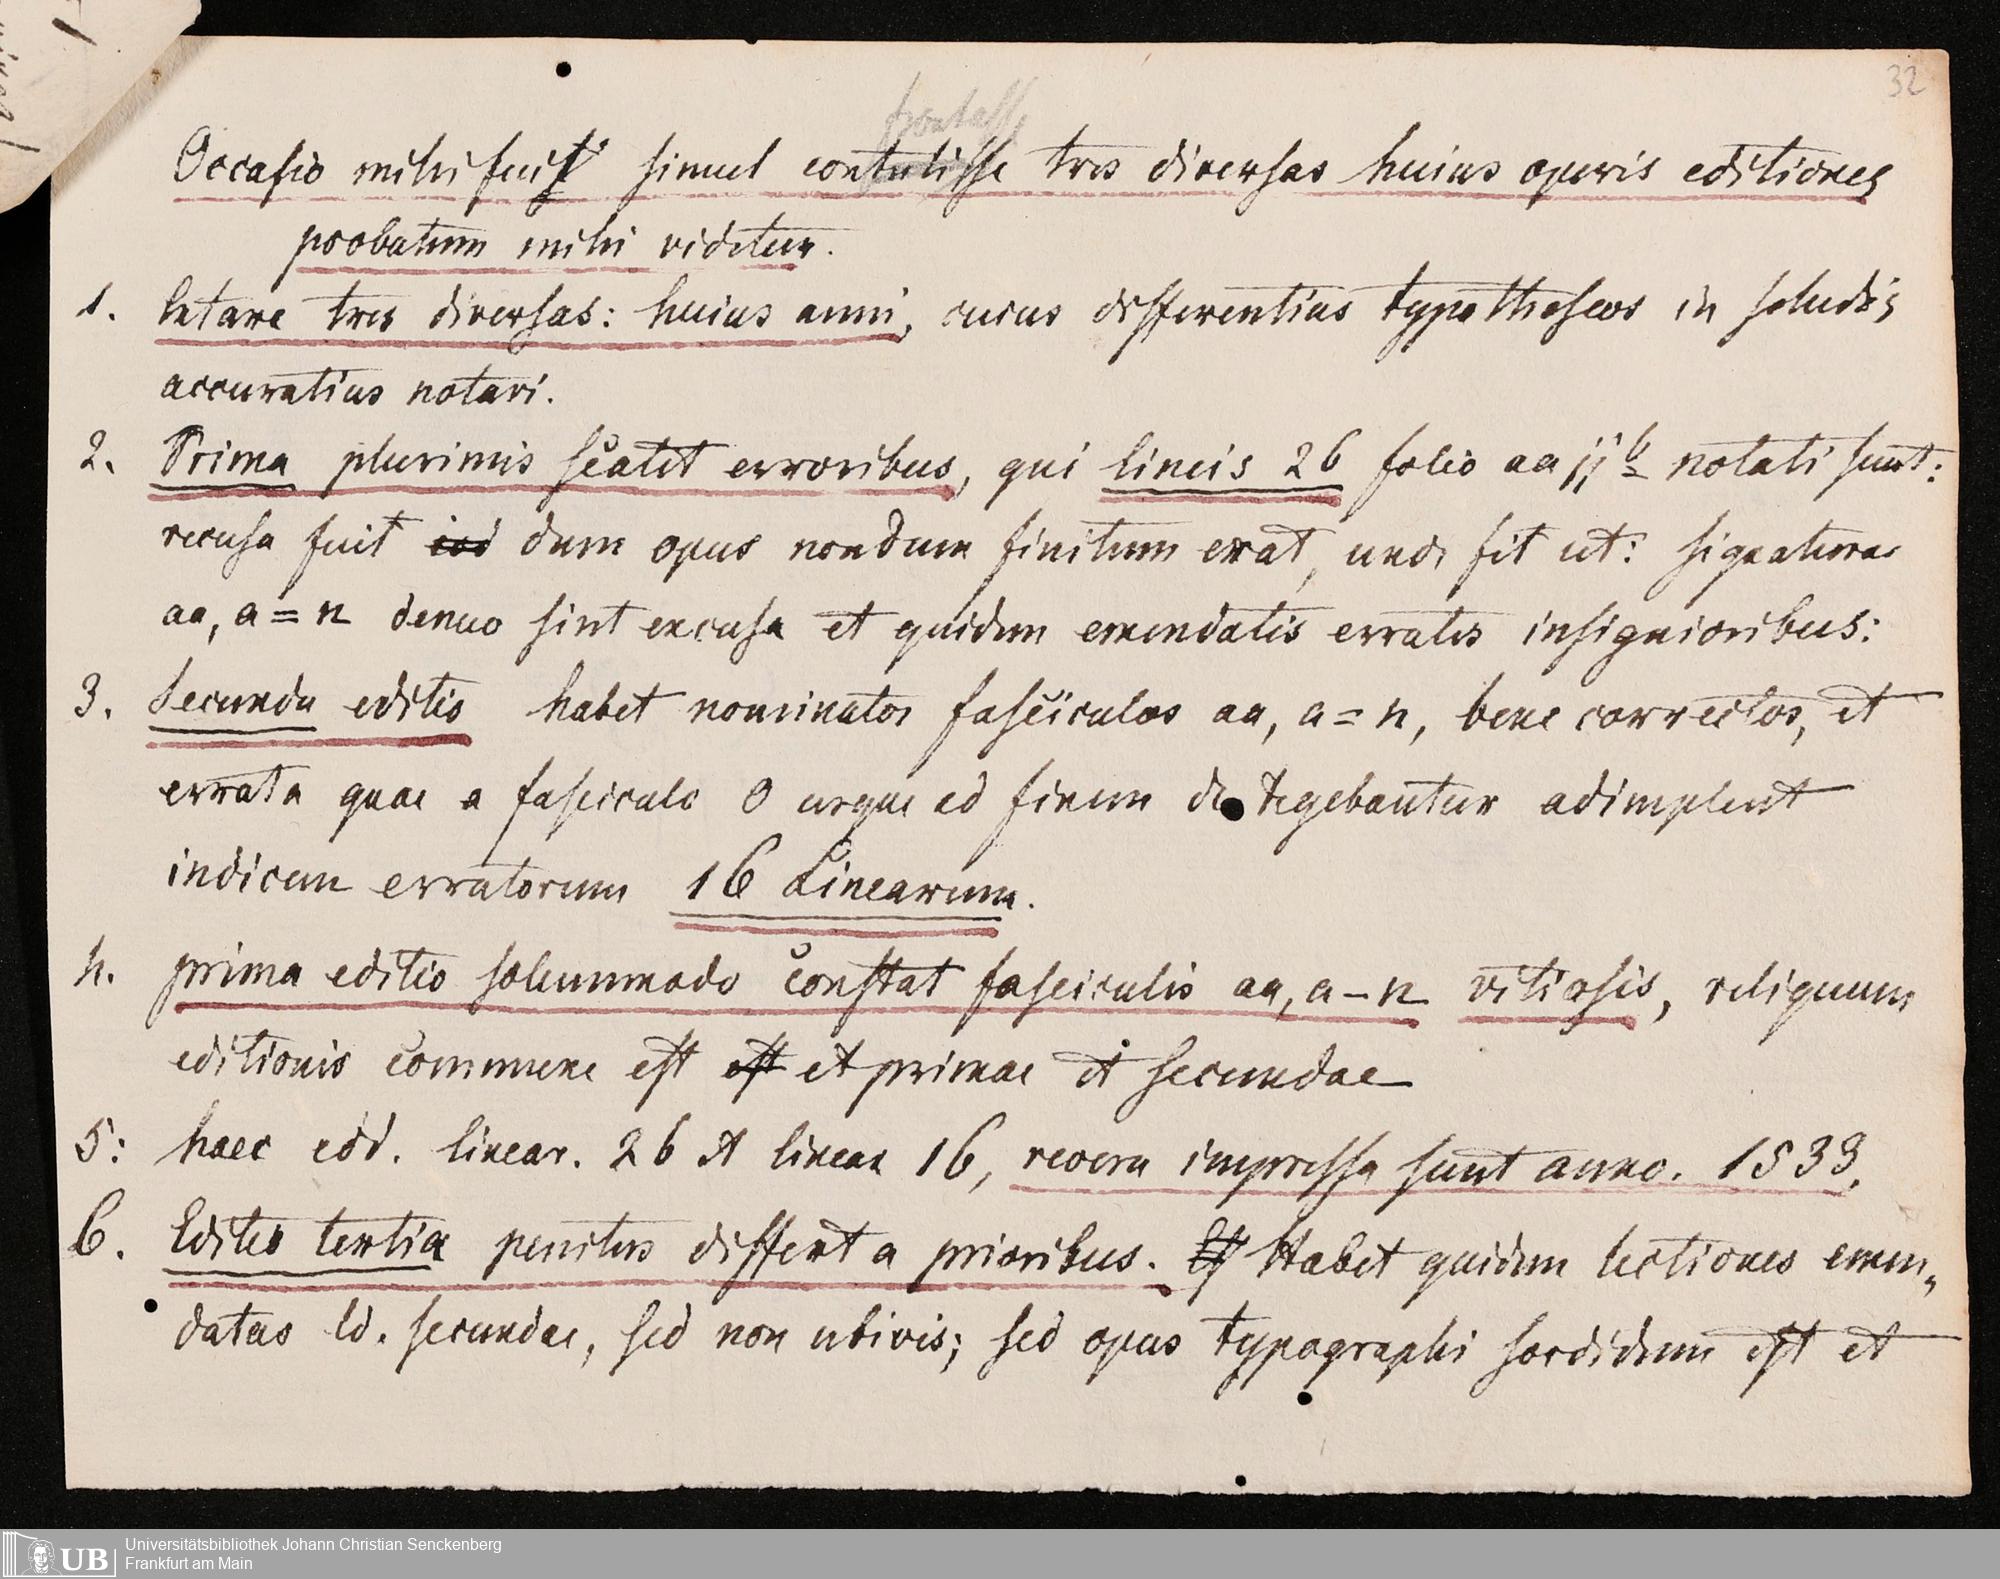 32
Occasio mihi fuit simul contulisse tres diversas huius operis editiones
probatum mihi videtur.
1. extare tres diversas: huius anni, cuius differentias typotheseos in
accuratius notavi.
2. Prima plurimis scatet erroribus, qui lineis 26 folio aa jj b notati sunt:
recusa fuit dum opus nondum finitum erat, unde fit ut: signaturae
aa, a = n denuo sint excusa et quidem emendatis erratis insignioribus:
3. Secunda editio habet nominatos fasciculos aa, a = n, bene correctos, et
errata quae a fasciculo O usque ad finem detegebantur adimplent
indicem erratorum 16 Linearum.
4. prima editio solummodo constat fasciculis aa, a – n vitiosis, reliquum
editionis commune est est et primae et secundae
5: haec edd. linear. 26 et linear 16, revera impressa sunt anno. 1533.
6. Editio tertia penitus differt a prioribus. Habet quidem lectiones emen„
datas Ed. secundae, sed non ubivis; sed opus typographi sordidum est et
UB
Universitätsbibliothek Johann Christian Senckenberg
Frankfurt am Main